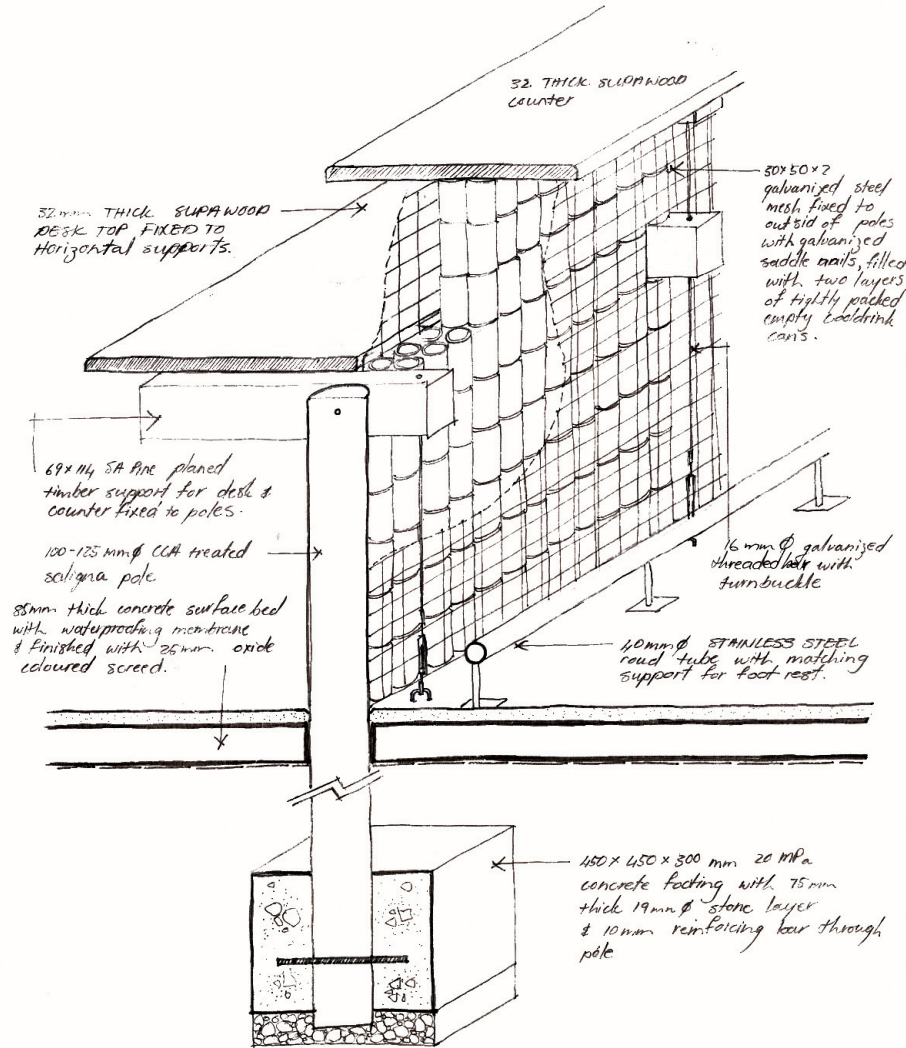 32 THICK SUPAWOOD
counter
32mm THICK SUPAWOOD
DESK TOP FIXED TO
Horizontal supports.
50x50x2
galvanized steel
mesh fixed to
outsid of poles
with galvanized
saddle nails, filled
with two layers
of tightly packed
empty cooldrink
cans.
69x114 SA Pine planed
timber support for desk &
counter fixed to poles.
100-125mm Ø CCA treated
saligna pole
85mm thick concrete surface bed
with waterproofing membrane
& finished with 25mm oxide
coloured screed.
16 mm Ø galvanized
threaded bar with
turnbuckle
40mm Ø STAINLESS STEEL
roud tube with matching
support for foot rest.
450 x 450 x 300 mm 20 MPa
concrete footing with 75mm
thick 19mm Ø stone layer
& 10mm reinforcing bar through
pole